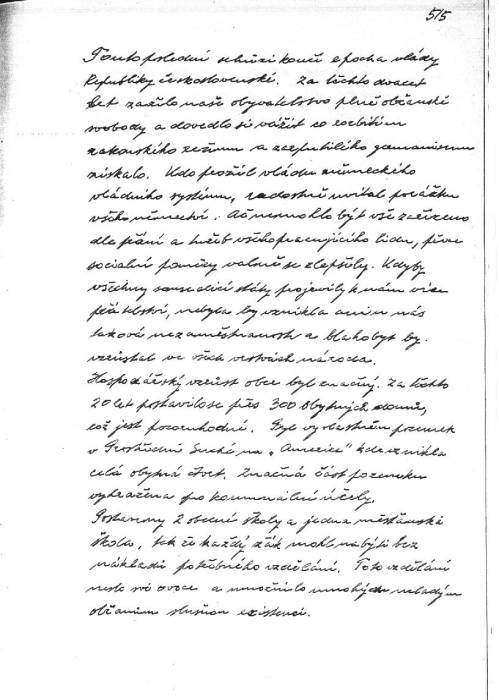 515
Touto poslední schůzí končí epocha vlády
Republiky československé. Za těchto dvacet
let zažilo naše obyvatelstvo plně občanské
svobody a dovedlo si vážit co rozbitím
rakouského režimu a zarputilého germanismu
získalo. Kdo prožil vládu německého
vládního systému, radostně uvítal porážku
všeho německví. Ač nemohlo být vše zařízeno
dle přání a tužeb všeho pracujícího lidu, přece
sociální poměry valně se zlepšily. Kdyby
všechny sousedící státy projevily k nám více
přátelství, nebyla by vznikla ani u nás
taková nezaměstnanost a blahobyt by
vzrůstal ve všech vrstvách národa.
Hospodářský vzrůst obce byl značný. Za těchto
20 let postavilo se přes 300 obytných domů,
což jest pozoruhodné. Byl vyvlastněn pozemek
v Prostřední Suché na „Americe" kde vznikla
celá obytná čtvrť. Značná část pozemku
vyhražena pro komunální účely.
Postaveny 2 obecné školy a jedna měšťanská
škola, tak že každý žák mohl nabýti bez
nákladů potřebného vzdělání. Toto vzdělání
neslo své ovoce a umožnilo mnohým mladým
občanům slušnou existenci.